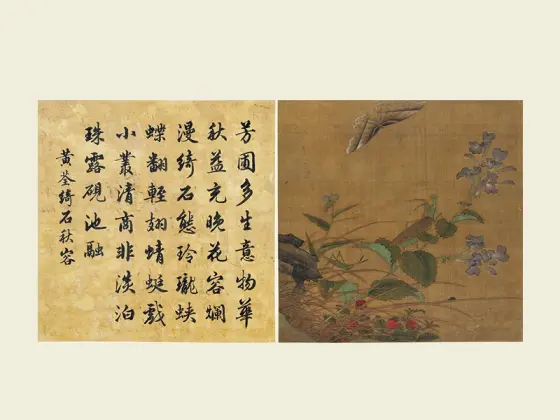 芳圃多生意物華
秋益充晚花容爛
漫綺石態玲瓏蛺
蝶翻輕翅蜻蜓戲
小叢清商非淡泊
珠露硯池融
黃筌綺石秋容